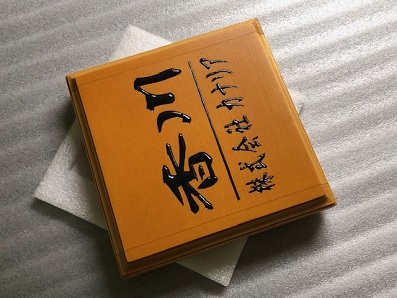 香川
株式会社 カナリア